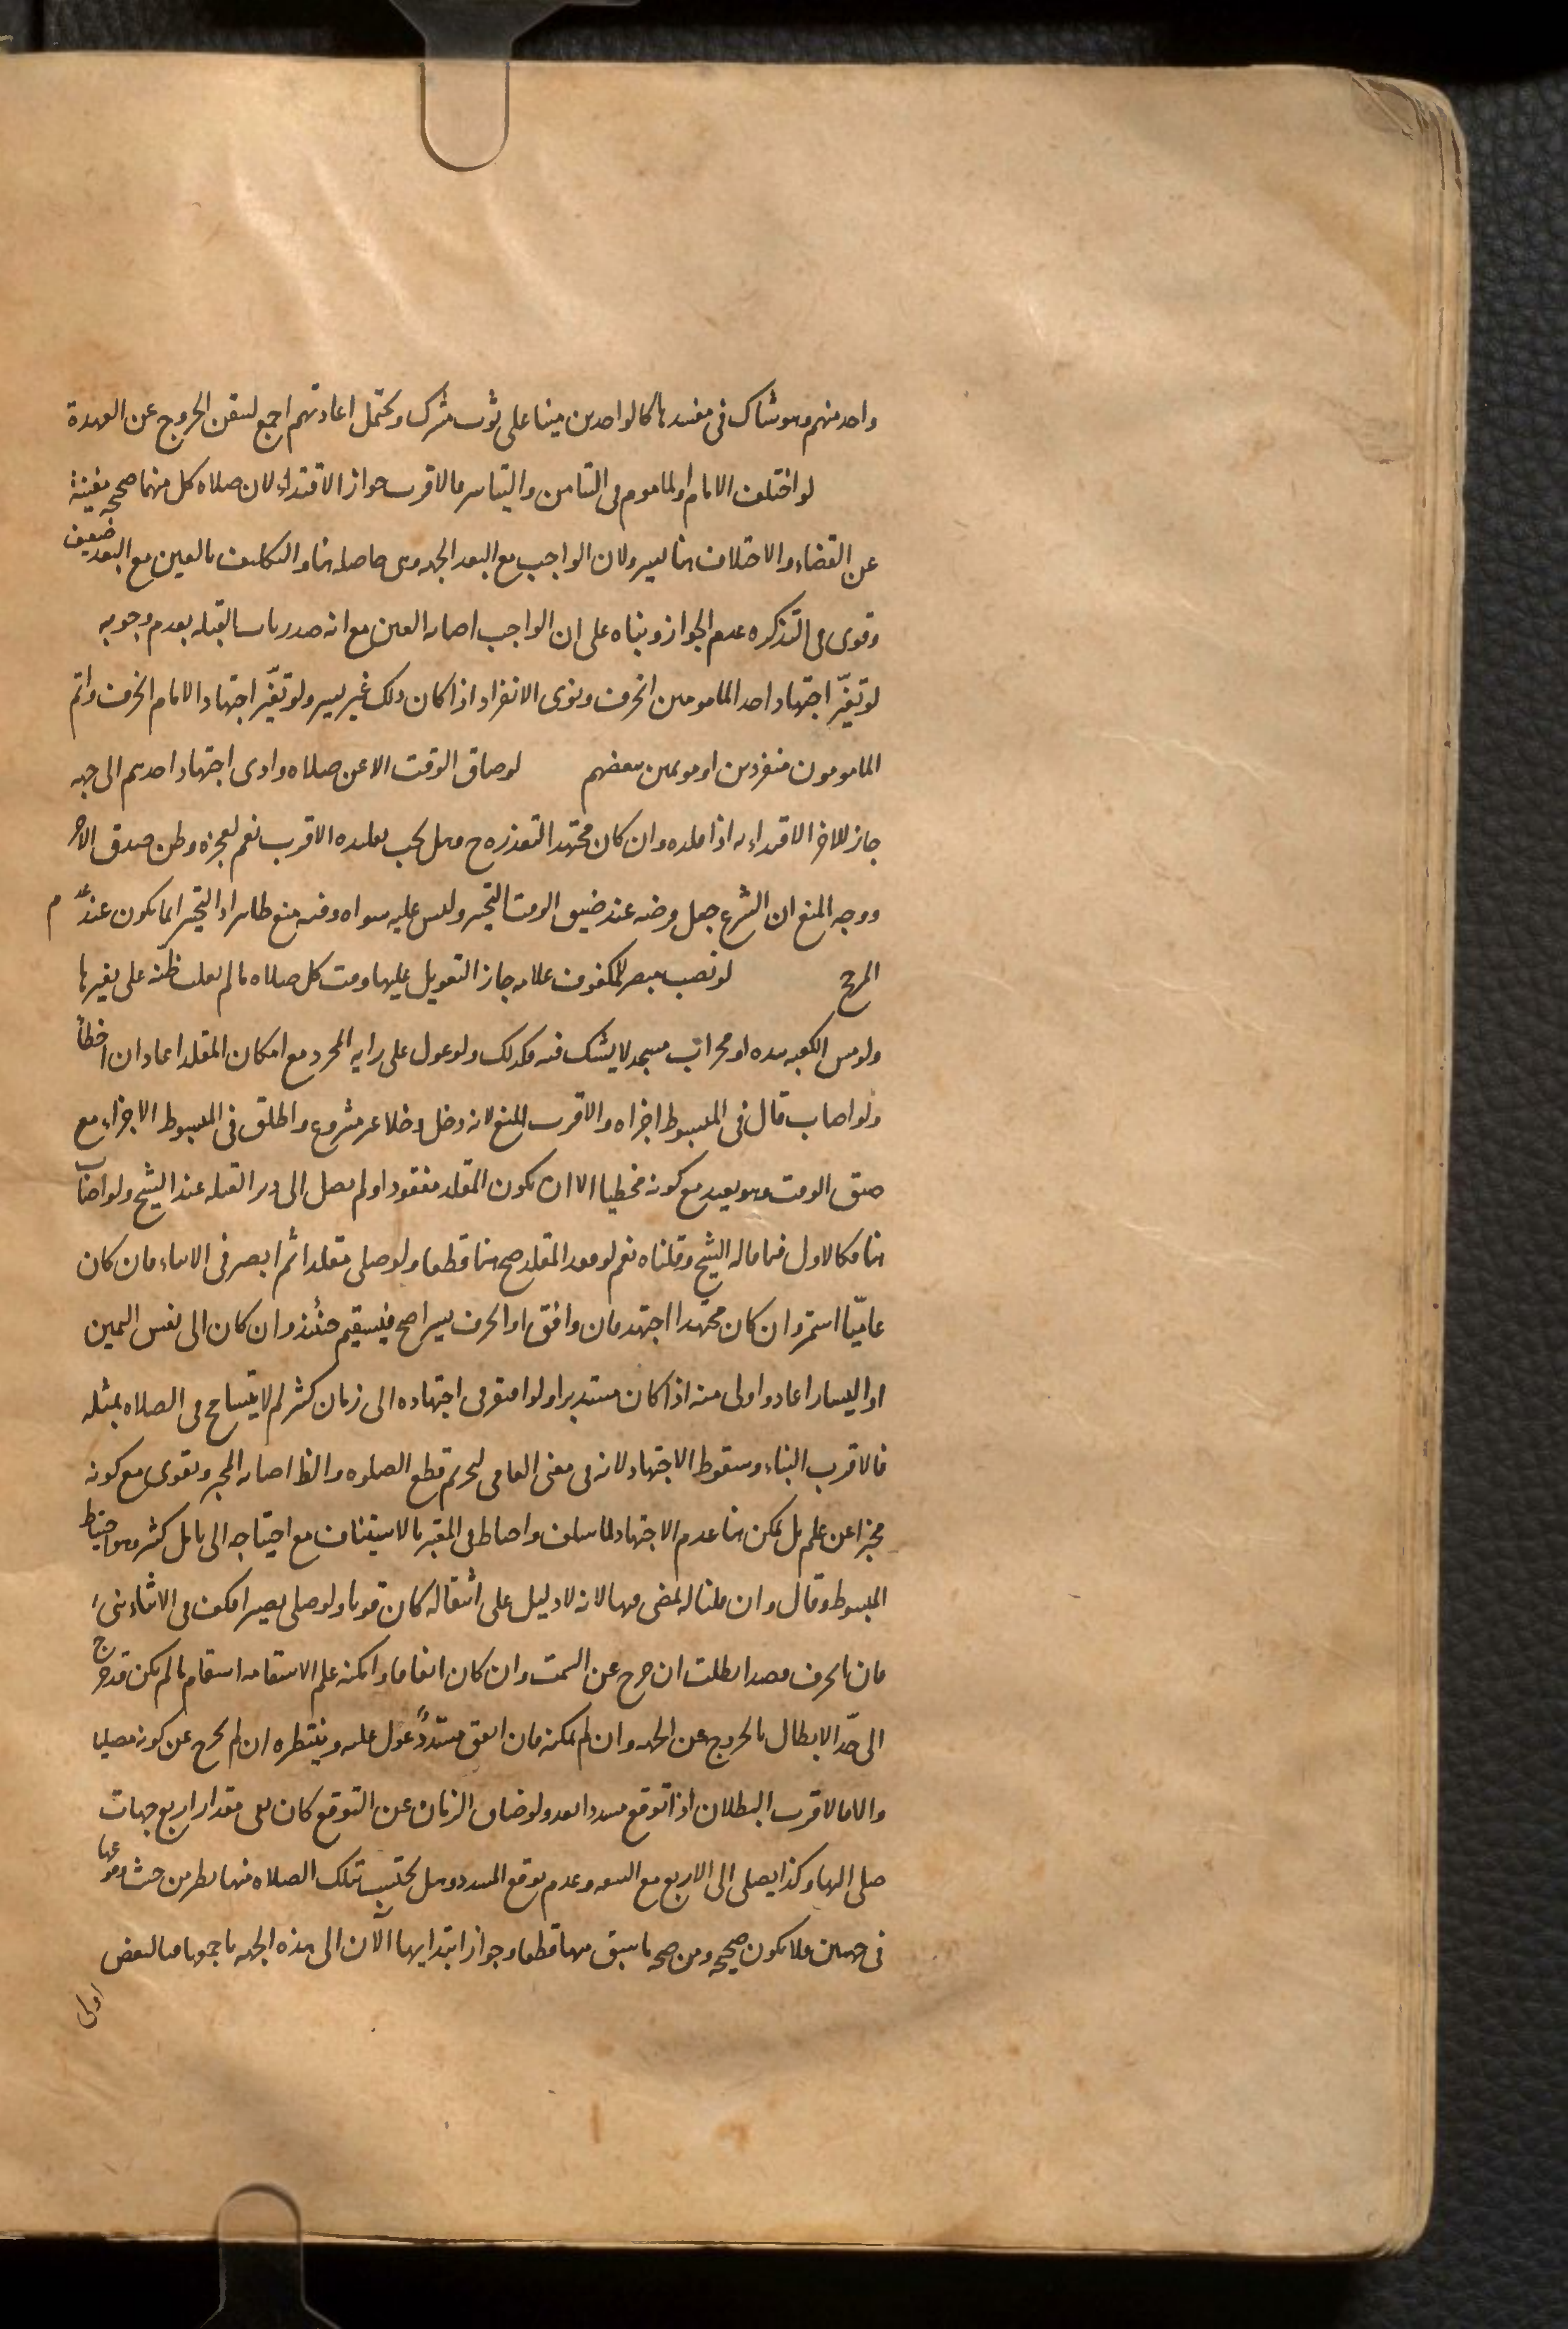 واحد منهم وهو شاك فى مفسدها كالواحدين منيا على ثوب مشترك ويحتمل اعادتهم اجمع ليتقن الخروج عن العهدة
لو اختلف الامام او الماموم فى التيامن والتياسر فالاقرب جواز الاقتداء لان صلاه كل منهما صحيحه مغنية
عن القضاء والاختلاف هنا يسير ولان الواجب مع البعد الجهه وهى حاصله هنا والتكليف بالعين مع البعد ضعيف
وقوى فى التذكره عدم الجواز وبناه على ان الواجب اصابه العين مع انه صدر باب القبله بعدم وجوبه
لو تغيّر اجتهاد احد المامومين انحرف وينوى الانفراد اذا كان ذلك غير يسير ولو تغيّر اجتهاد الامام انحرف واتم
المامومون منفردين او موتمين ببعضهم لو ضاق الوقت الا عن صلاه وادى اجتهاد احدهم الى جهه
جاز للاخر الاقتداء به اذا قلده وان كان مجتهدا لتعذره ح وهل يجب تقليده الاقرب نعم لعجزه وظن صدق الاخر
ووجه المنع ان الشرع جعل فرضه عند ضيق الوقت التخير وليس عليه سواه وفيه منع ظاهر اذ التخير انما يكون عند عدم
المرجح لو نصب مبصر للمكفوف علامه جاز التعويل عليها وقت كل صلاه ما لم يغلب ظنه على تغيرها
ولو مس الكعبه بيده او محراب مسجد لا يشك فيه فكذلك ولو عول على رايه المجرد مع امكان المقلد اعاد ان اخطأ
ولو اصاب قال فى المبسوط اجزاه والاقرب المنع لانه دخل دخلا غير مشروع واطلق فى المبسوط الاجزاء مع
ضيق الوقت وهو بعيد مع كونه مخطيا الا ان يكون المقلد مفقودا ولم يصل الى دبر القبله عند الشيخ ولو اصاب
هنا فكالاول فيما قاله الشيخ وقلناه نعم لو فقد المقلد صح هنا قطعا ولو صلى مقلدا ثم ابصر فى الاثناء فان كان
عاميّا استمر وان كان مجتهدا اجتهد فان وافق او انحرف يسيرا صح فيستقيم حينئذ وان كان الى نفس اليمين
او اليسار اعاد واولى منه اذا كان مستدبرا ولو افتقر فى اجتهاده الى زمان كثير لا يتسامح فى الصلاه بمثله
فالاقرب البناء وسقوط الاجتهاد لانه فى معنى العامى لتحريم قطع الصلوه والظ اصابه المخبر ويقوى مع كونه
مخبرا عن علم بل يمكن هنا عدم الاجتهاد لما سلف واحتاط فى المعتبر بالاستيناف مع احتياجه الى تامل كثير وهو احتياط
المبسوط وقال وان قلنا له يمضى فيها لانه لا دليل على انتقاله كان قويا ولو صلى بصيرا فكف فى الاثناء بنى
فان انحرف قصدا بطلت ان خرج عن السمت وان كان اتفاقا وامكنه علم الاستقامه استقام ما لم يكن قد خرج
الى حدّ الابطال بالخروج عن الجهه وان لم يمكنه فان اتفق مسددٌ عول عليه وينتظره ان لم يخرج عن كونه مصليا
والا فالاقرب البطلان اذا توقع مسددا بعد ولو ضاق الزمان عن التوقع كان بقى مقدار اربع جهات
صلى اليها وكذا يصلى الى الاربع مع السعه وعدم توقع المسدد وهل يحتسب بتلك الصلاه منها نظر من حيث وقوعها
فى جهتين فلا يكون صحيحه ومن صحه ما سبق منها قطعا وجواز ابتدايها الآن الى هذه الجهه باجمعها فالبعض
اولى